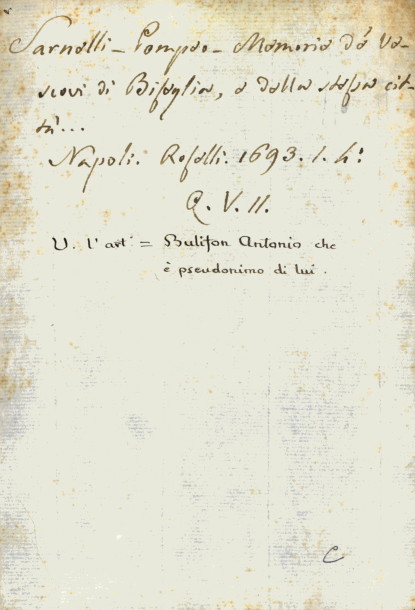 Sarnelli - Pompeo - Memorie de' Ve-
scovi di Biseglia, e della stessa cit-
tà...
Napoli. Roselli. 1693. 1. 4º
Q. V. 11.
V. l'art = Bulifon Antonio che
è pseudonimo di lui.
C